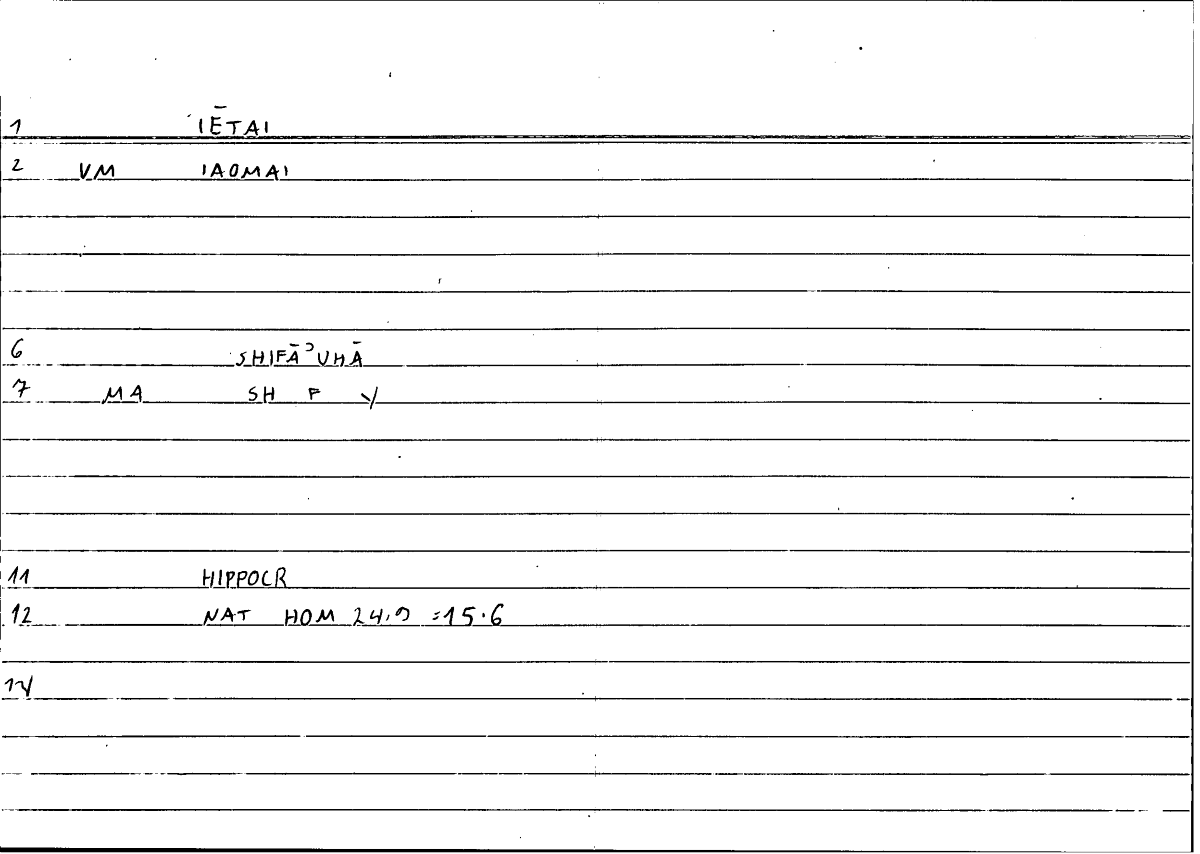 1 IĒTAI
2 VM IAOMAI
6 SHIFĀʾUHĀ
7 MA SH F Y
11 HIPPOCR
12 NAT HOM 24,9 =15.6
14